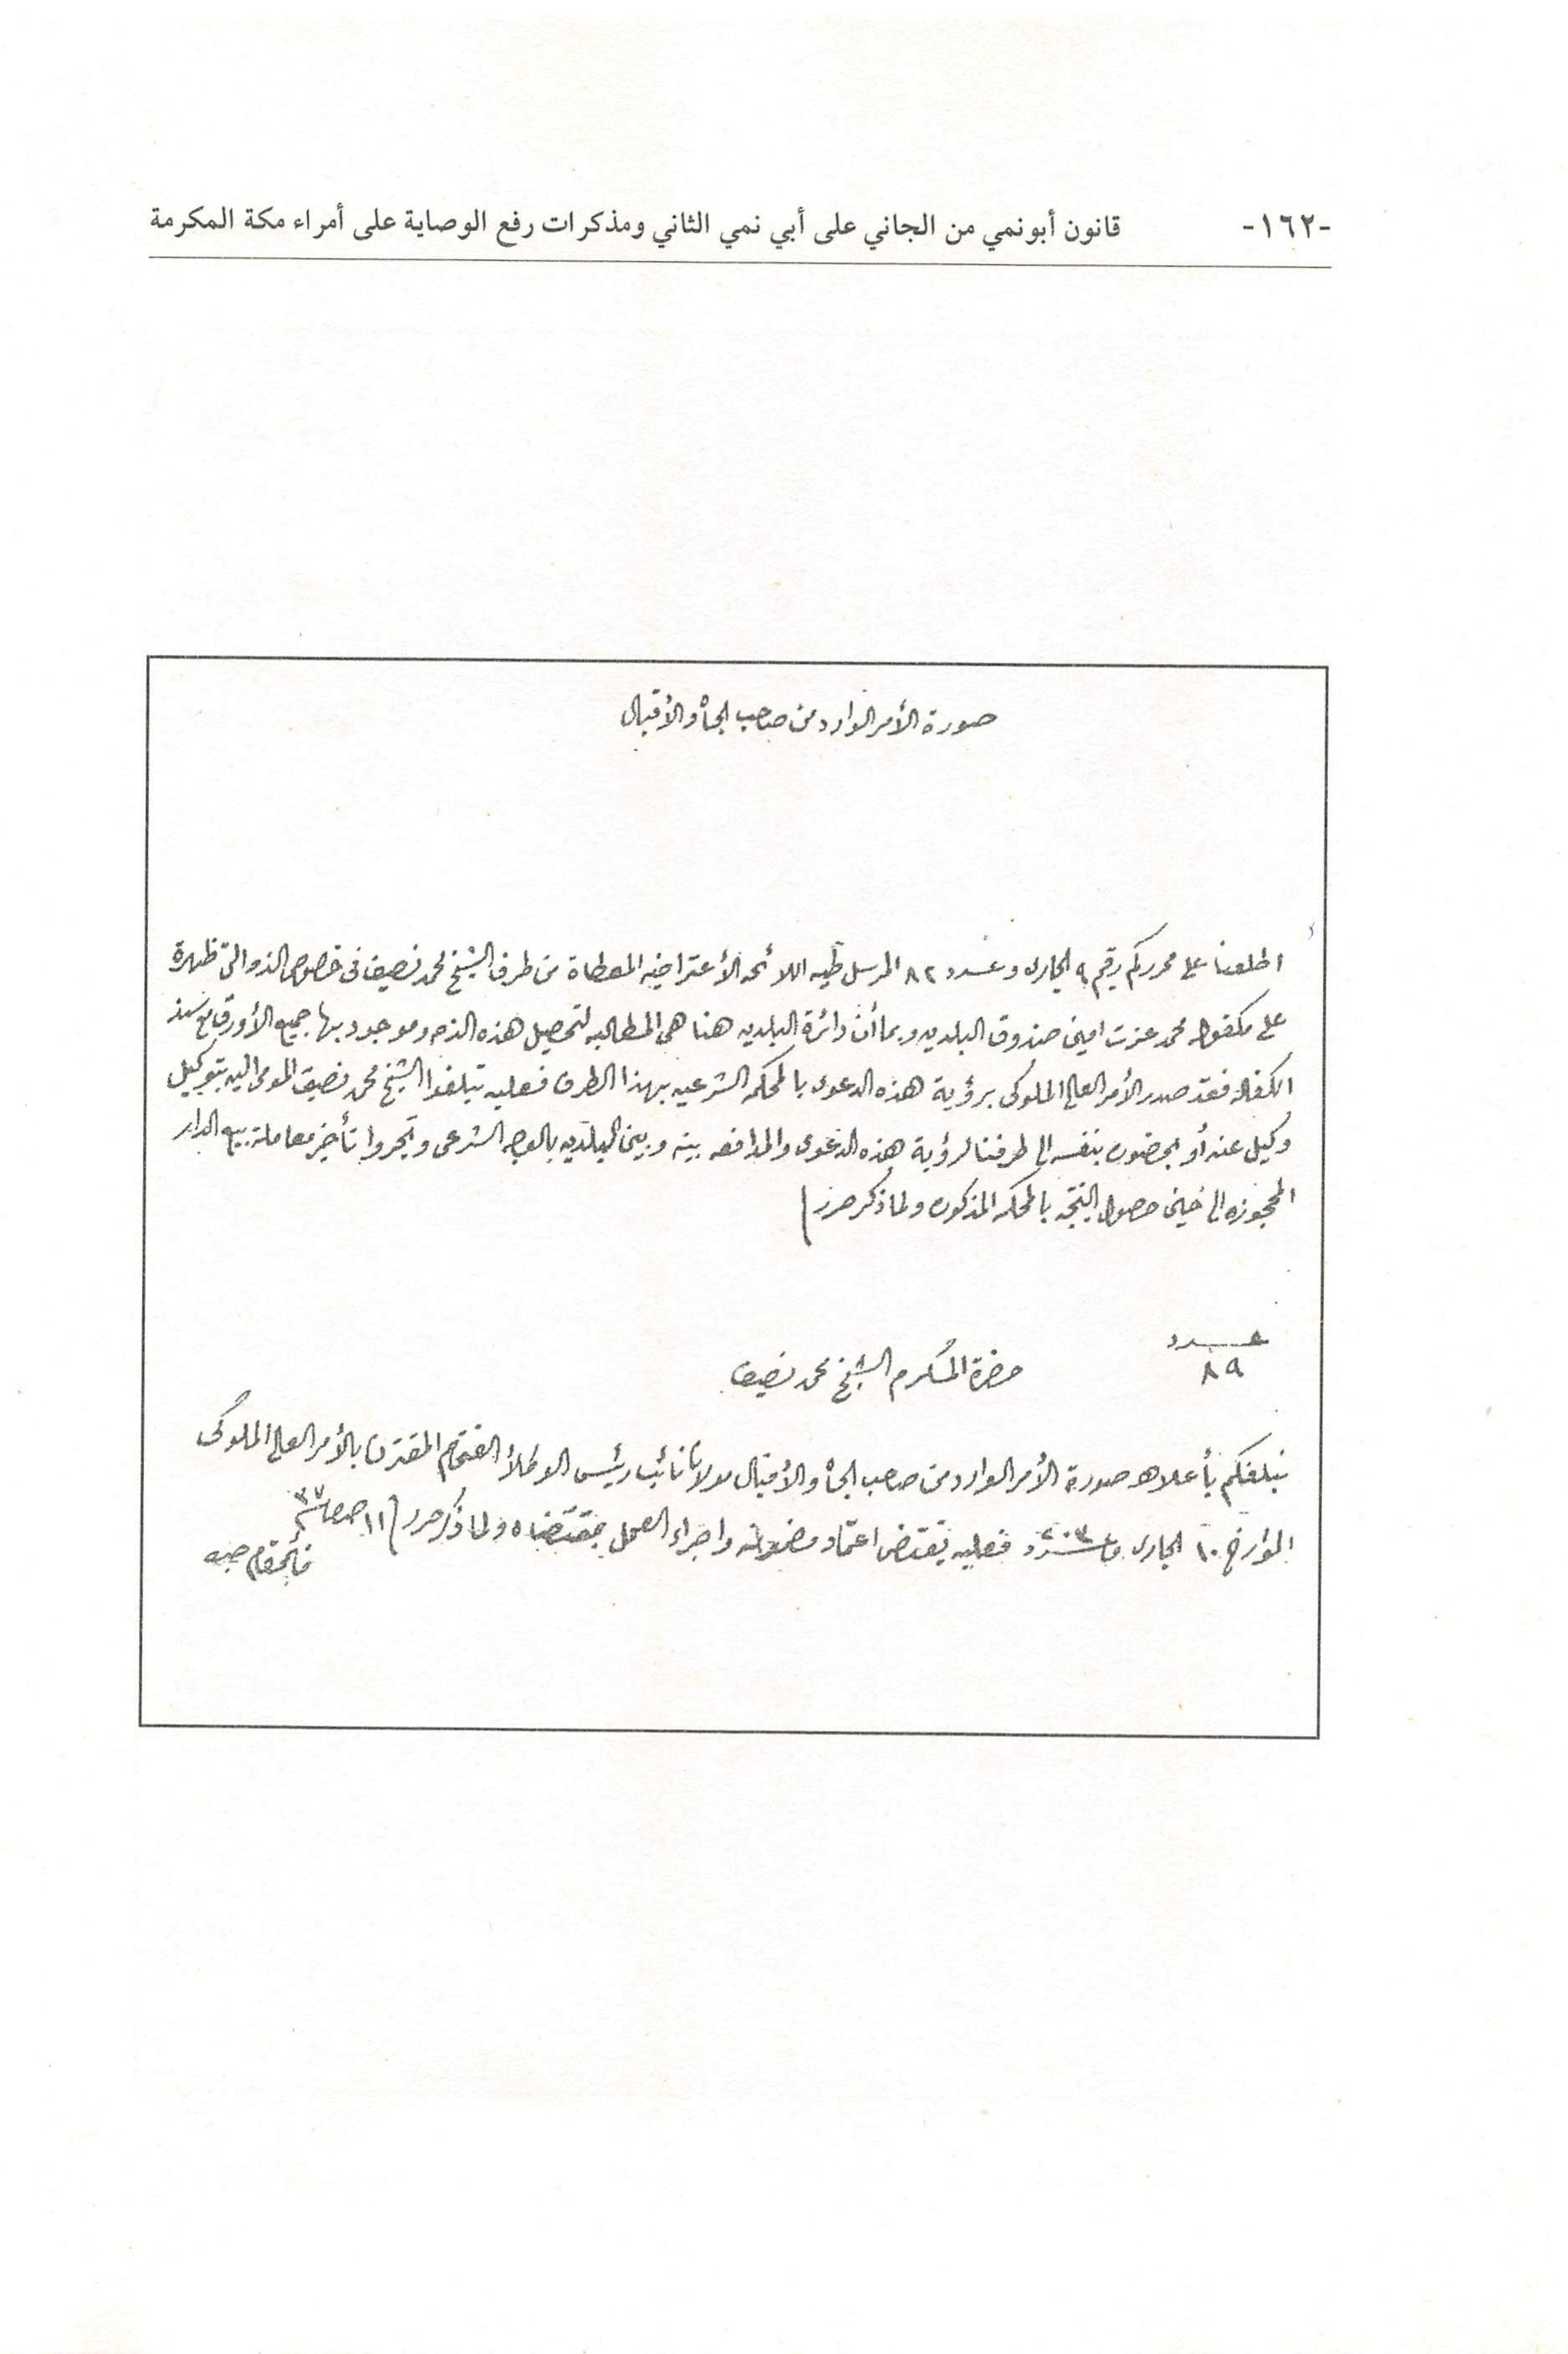 -١٦٢- قانون أبونمي من الجاني على أبي نمي الثاني ومذكرات رفع الوصاية على أمراء مكة المكرمة
صورة الأمر الوارد من صاحب الجاه والأقبال
اطلعنا على محرركم رقيم ٩ الجارى وعدد ٨٢ المرسل طيه اللائحه الأعتراضيه المعطاة من طرف الشيخ محمد نصيف فى خصوص الذمه التى ظهرة
على مكفوله محمد عزت امين صندوق البلديه وبما أن دائرة البلديه هنا هى المطالبه لتحصيل هذه الذمه وموجود بها جميع الأورقاع سند
الكفاله فقد صدر الأمر العالى الملوكى برؤية هذه الدعوى بالمحكمه الشرعيه بهذا الطرف فعليه تبلغوا الشيخ محمد نصيف المومى اليه بتوكيل
وكيل عنه أو بحضوره بنفسه الى طرفنا لرؤية هذه الدعوى والمدافعه بينه وبين البلديه بالوجه الشرعى وتجروا تأخير معاملة بيع الدار
المحجوزه الى حين حصول النتيجه بالمحكمه المذكوره ولما ذكر حرر
عدد
٨٩
حضرة المكرم الشيخ محمد نصيف
نبلغكم بأعلاه صورة الأمر الوارد من صاحب الجاه والأقبال مولانا نائب رئيس الوكلاء الفخام المقترن بالأمر العالى الملوكى
المؤرخ ١٠ الجارى وعدد ٢٠٣ فعليه يقتضى اعتماد مضمونه واجراء العمل بمقتضاه ولما ذكر حرر ١١ ٣٧
قائمقام جده